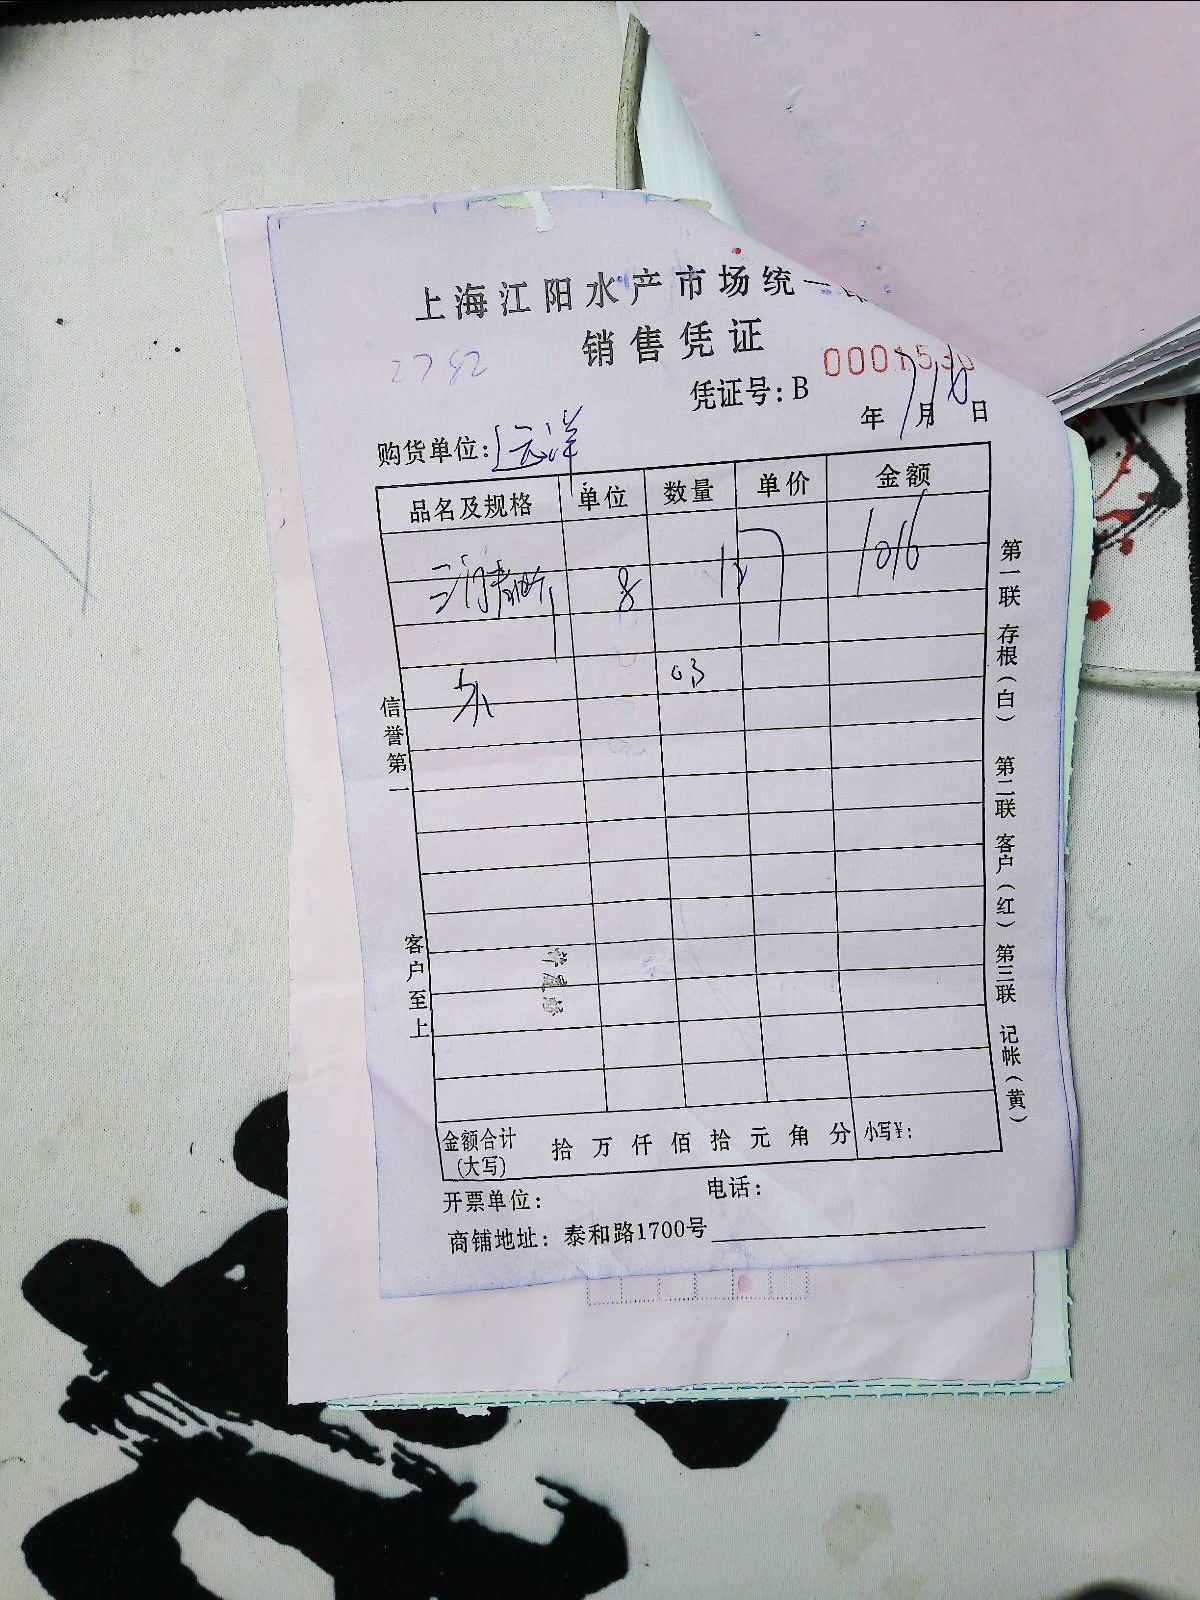 上海江阳水产市场统一
销售凭证
2782
凭证号：B 0001530
年 7 月 16 日
购货单位：远洋
品名及规格 单位 数量 单价 金额
三门青蟹 8 127 1016
03
信誉第一
客户至上
第一联 存根（白） 第二联 客户（红） 第三联 记帐（黄）
金额合计 拾 万 仟 佰 拾 元 角 分 小写¥：
(大写)
开票单位： 电话：
商铺地址：泰和路1700号